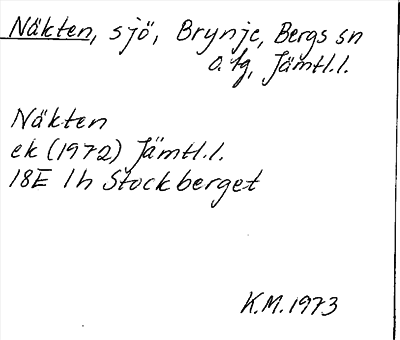 Näkten, sjö, Brynje, Bergs sn
o. tg, Jämtl.l.
Näkten
ek (1972) Jämtl.l.
18E 1h Stockberget
K.M. 1973